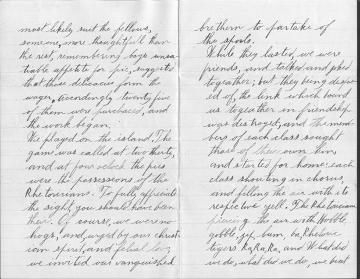 most likely suit the fellows,
someone, more thoughtful than
the rest, remembering boys' insa-
tiable appetite for pie, suggests
that those delicacies form the
wager. Accordingly twenty five
of them were purchased, and
the work began.
We played on the island. The
game was called at two thirty,
and at four oclock the pies
were the possessions of the
Rhetoricians. To fully appreciate
the sight, you should have been
there. Of course, we were no
hogs, and, urged by our christ-
ian spirit, and
we invited our vanquished
brethern to partake of
the spoils.
While they lasted, we were
friends, and talked and joked
together; but they being destroy-
ed, the link which bound
us together in friendship
was destroyed, and the mem-
bers of each class sought
those of their own kin,
and started for home: each
class shouting in chorus,
and filling the air with its
respective yell. The Rhetoricians
piercing the air with gobble,
gobble,
tigers, Ra, Ra, Ra, and What did
we do, what did we do, we beat